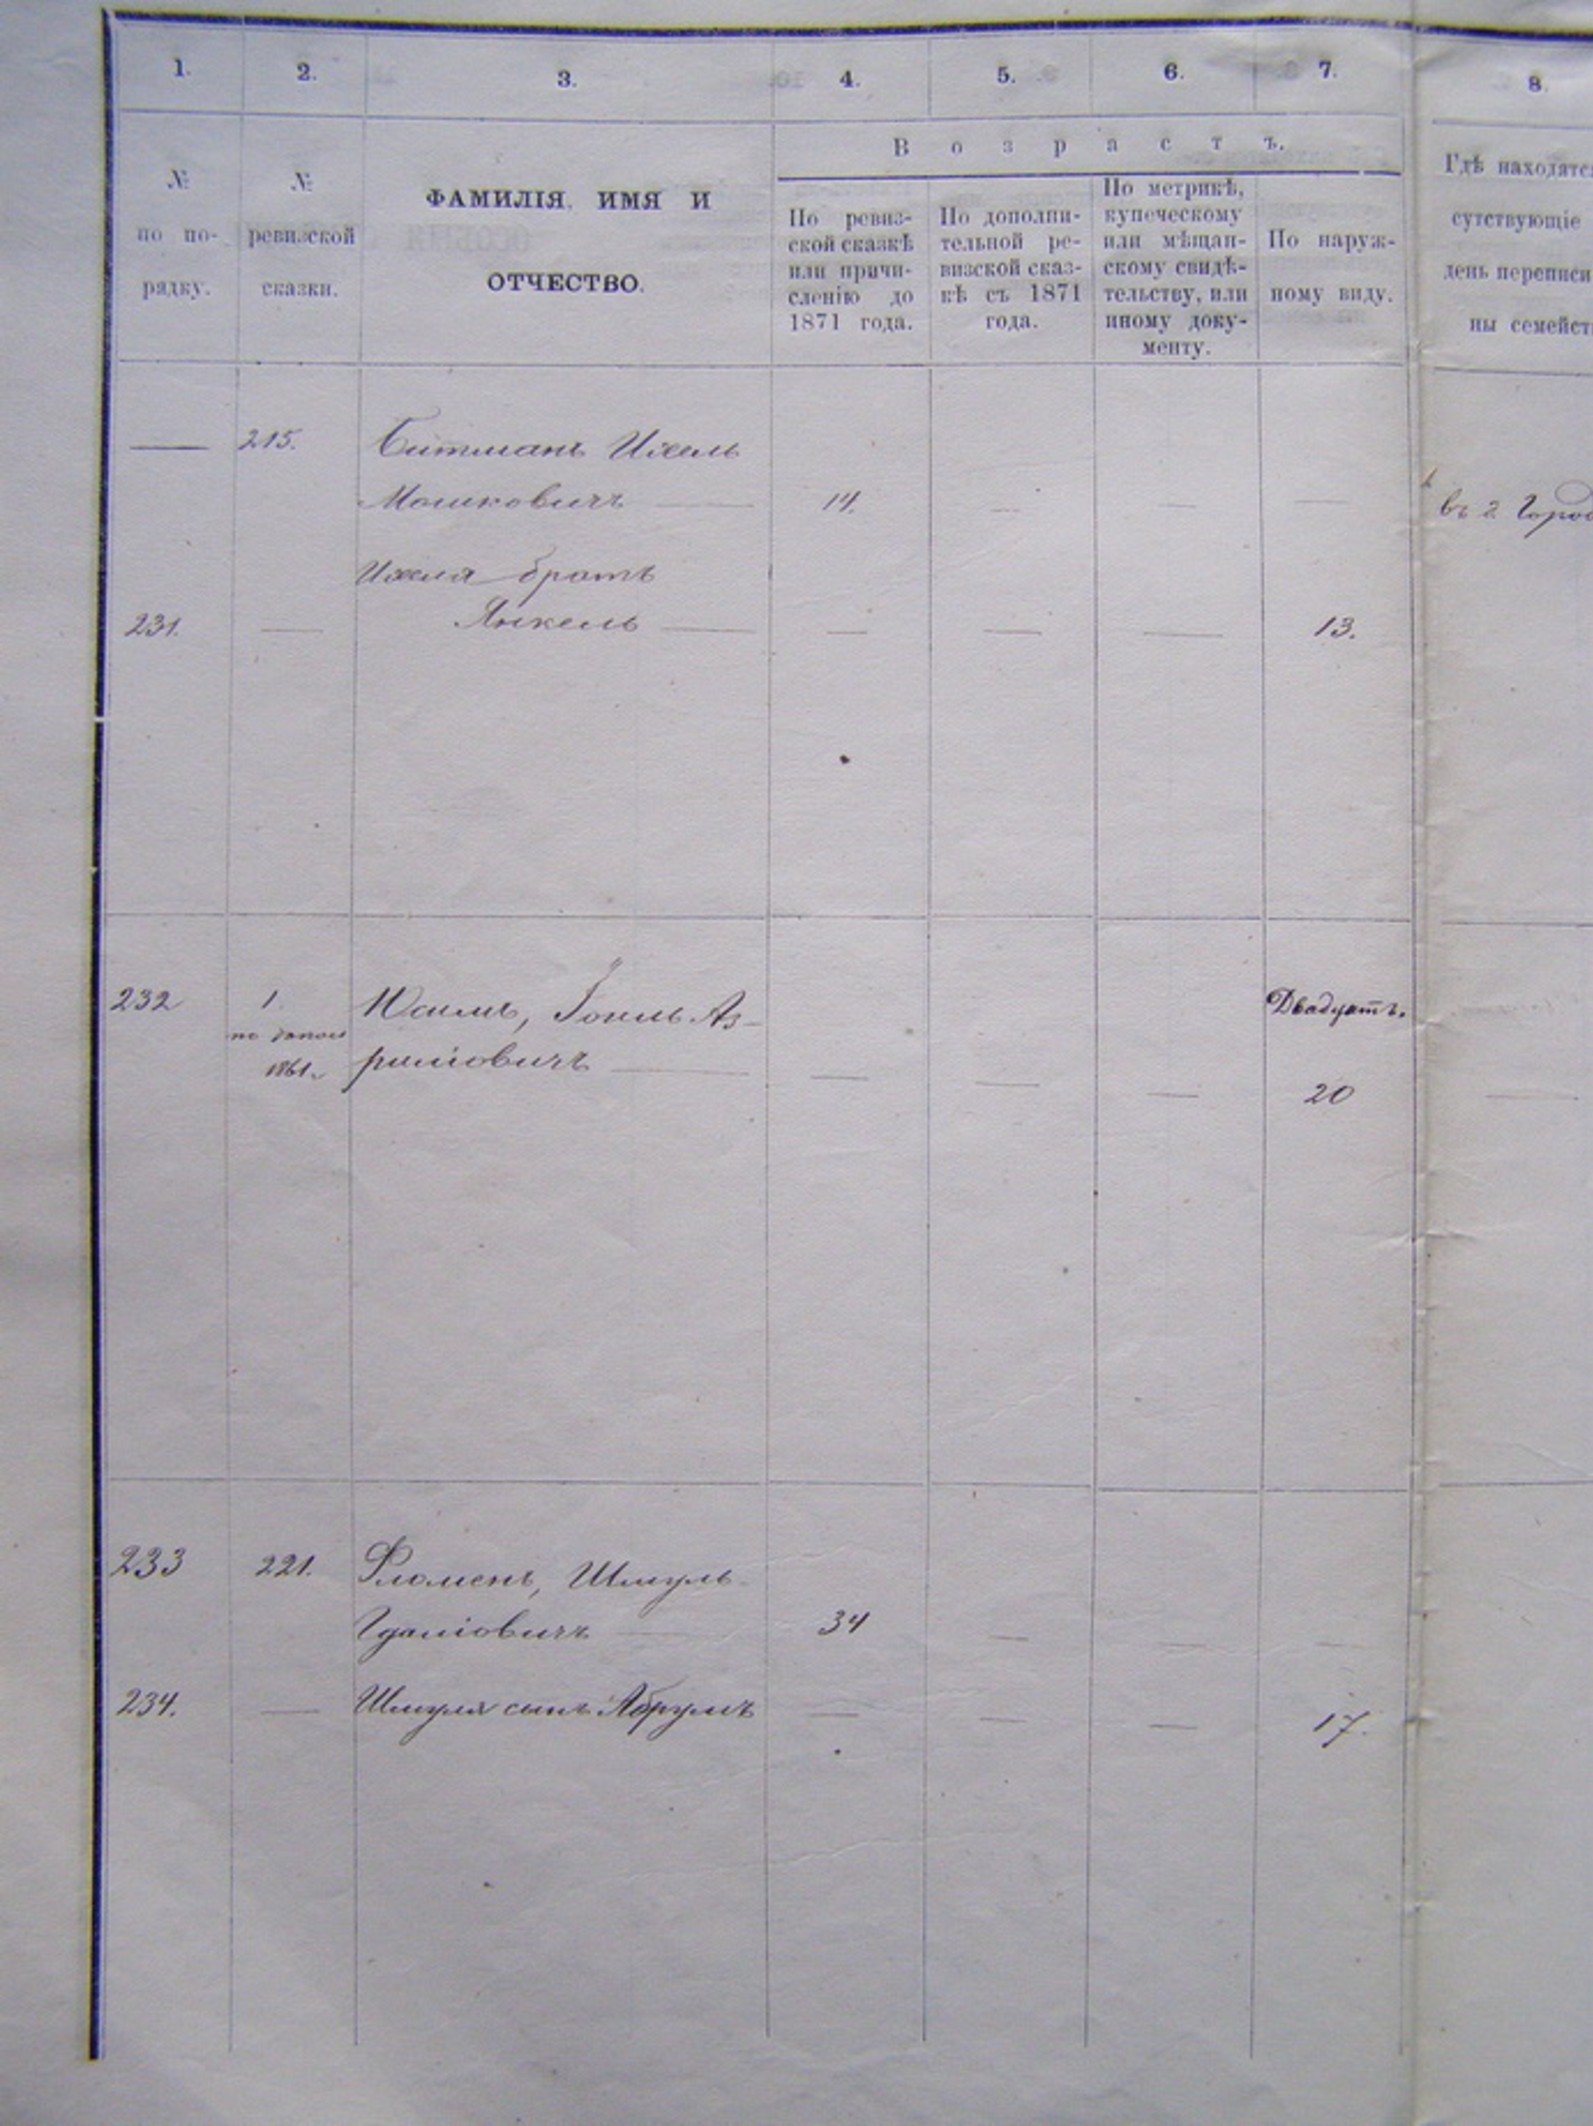 1. 2. 3. 4. 5. 6. 7. 8.
№
по по-
рядку.
№
ревизской
сказки.
ФАМИЛІЯ, ИМЯ И
ОТЧЕСТВО.
Возрастъ.
По ревиз-
ской сказкѣ
или причи-
сленію до
1871 года.
По дополни-
тельной ре-
визской сказ-
кѣ съ 1871
года.
По метрикѣ,
купеческому
или мѣщан-
скому свидѣ-
тельству, или
иному доку-
менту.
По наруж-
ному виду.
Гдѣ находятс
сутствующіе
день переписи
ны семейст
— 215. Битманъ Ихель
Мошковичъ — 14. — — —
въ г. Горо
Ихеля братъ
231. — Янкель — — — — 13.
232 1. Іоель Аз- Двадцать.
по допол
1861 г. риліовичъ — — — — 20 —
233 221. Фломенъ, Шмуль
Гдаліовичъ — 34 — — —
234. — Шмуля сынъ Абрумъ — — — 17.